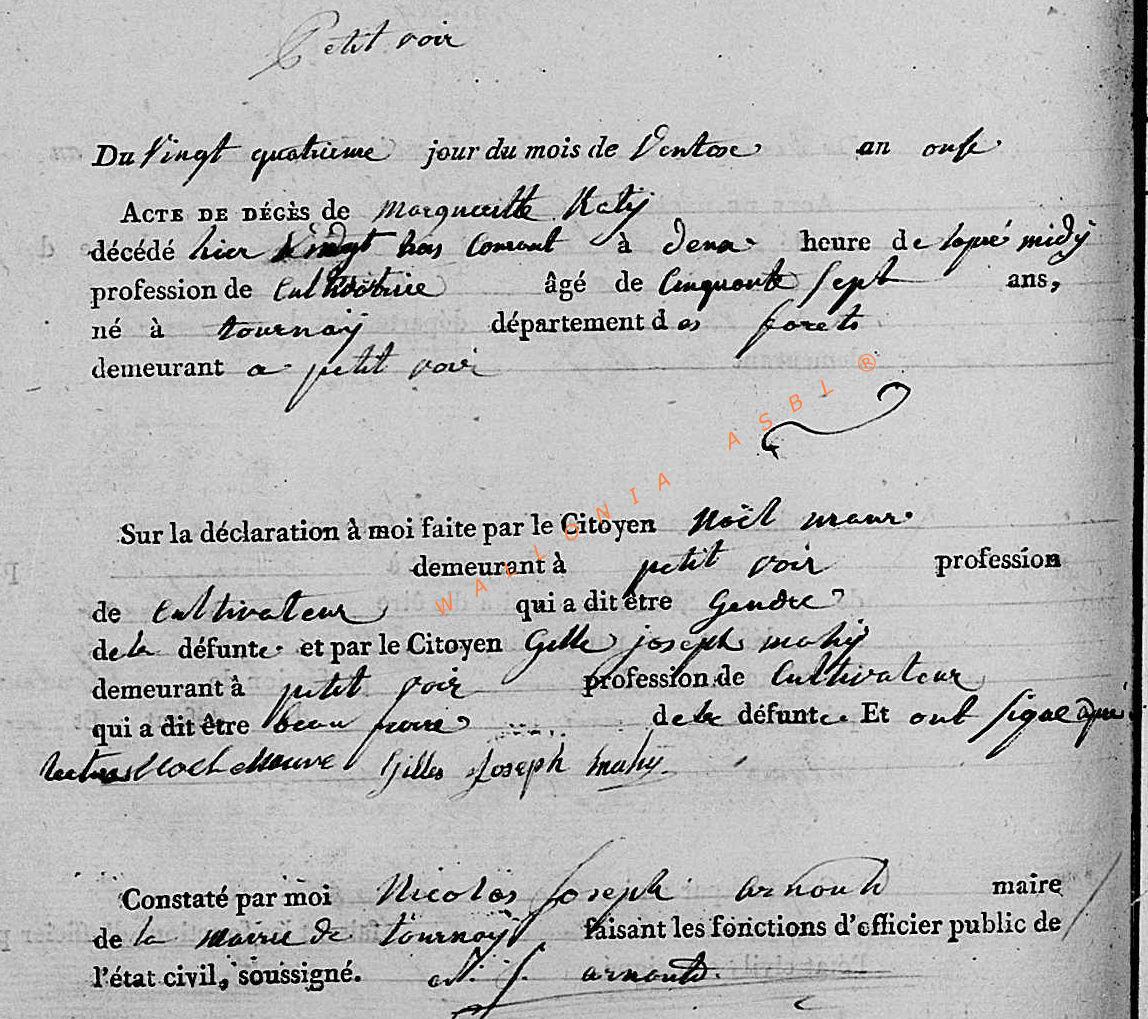 Petit voir
Du Vingt quatrieme jour du mois de Ventose an onse
ACTE DE DÉCÈS de Marguerite Katÿ
décédé hier Vingt trois Courant à deux heure de lapré midÿ
profession de Cultivatrice âgé de Cinquante Sept ans,
né à tournaÿ département des forets
demeurant a petit voir
Sur la déclaration à moi faite par le Citoyen Noël
demeurant à petit voir profession
de Cultivateur qui a dit être Gendre
de la défunte et par le Citoyen Gille joseph mahÿ
demeurant à petit voir profession de Cultivateur
qui a dit être beau frere de la défunte. Et ont signe apré
lecture Gilles Joseph mahÿ
Constaté par moi Nicolas Joseph arnould maire
de la mairie de tournaÿ faisant les fonctions d'officier public de
l'état civil, soussigné. N. J. arnould.
WALLONIA ASBL ®